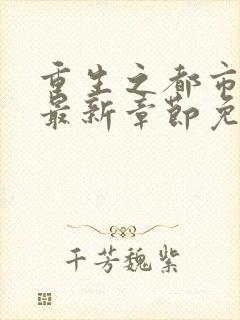 重生之都市
最新章节免
千芳魏紫